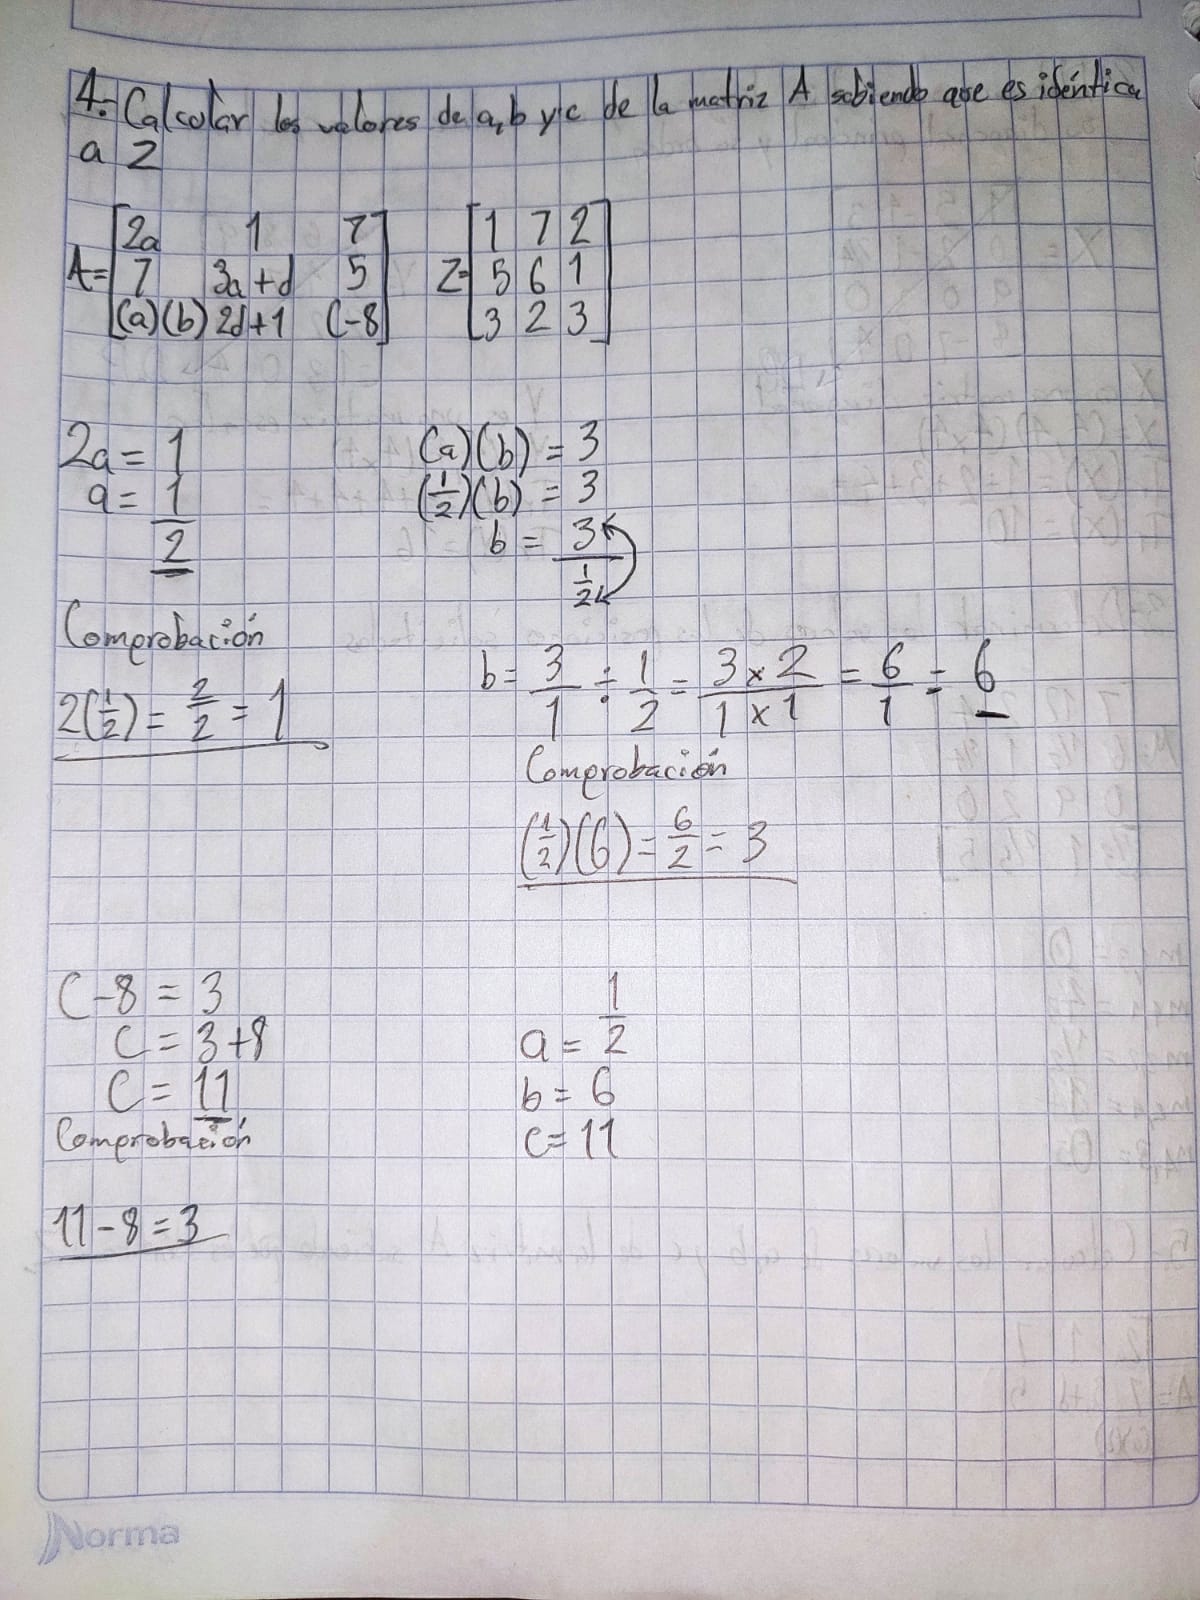 4.- Calcular los valores de a, b y c de la matriz A sabiendo que es idéntica
a Z
A = [2a 1 7
7 3a+d 5
(a)(b) 2d+1 C-8]
Z = [1 7 2
5 6 1
3 2 3]
2a = 1
a = 1/2
Comprobación
2(1/2) = 2/2 = 1
(a)(b) = 3
(1/2)(b) = 3
b = 3/(1/2)
b = 3/1 ÷ 1/2 = 3x2/1x1 = 6/1 = 6
Comprobación
(1/2)(6) = 6/2 = 3
C-8 = 3
C = 3+8
C = 11
Comprobación
11-8=3
a = 1/2
b = 6
c = 11
Norma